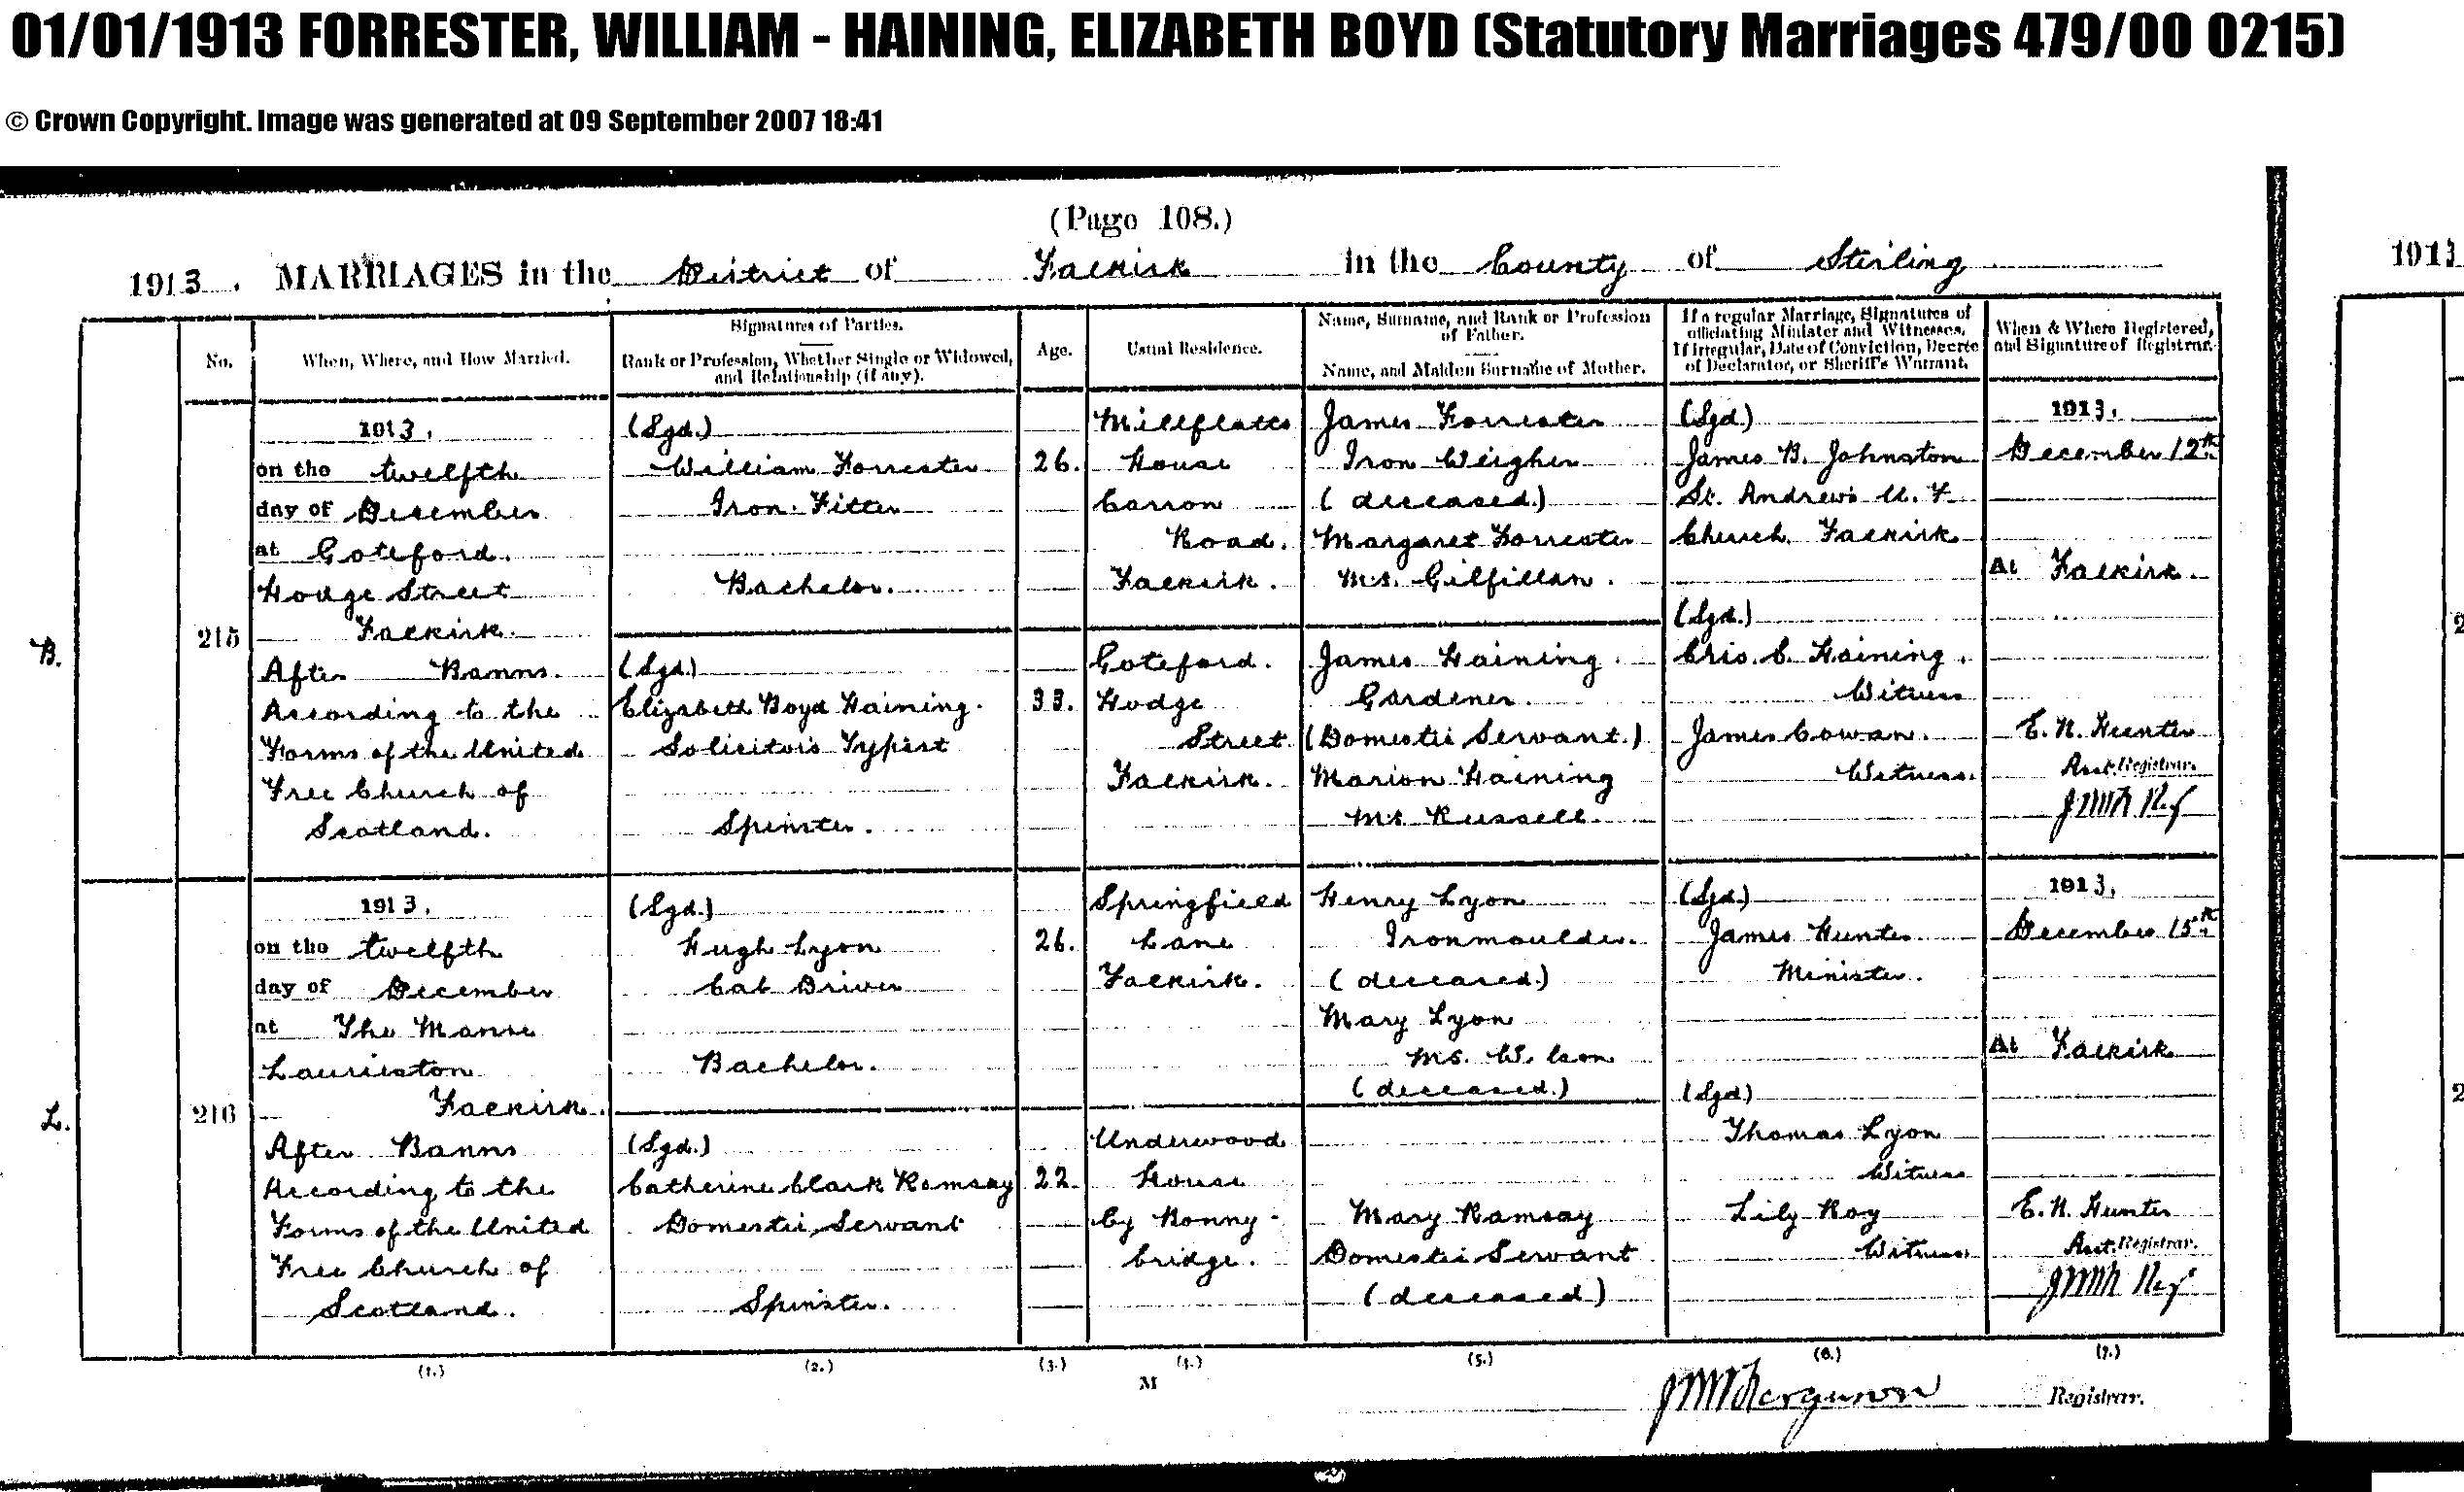 01/01/1913 FORRESTER, WILLIAM - HAINING, ELIZABETH BOYD (Statutory Marriages 479/00 0215)
© Crown Copyright. Image was generated at 09 September 2007 18:41
(Page 108.)
1913. MARRIAGES in the District of Falkirk in the County of Stirling
1913
No.
When, Where, and How Married.
Signatures of Parties.
Rank or Profession, Whether Single or Widowed,
and Relationship (if any).
Age.
Usual Residence.
Name, Surname, and Rank or Profession
of Father.
Name, and Maiden Surname of Mother.
If a regular Marriage, Signatures of
officiating Minister and Witnesses.
If irregular, Date of Conviction, Decree
of Declarator, or Sheriff's Warrant.
When & Where Registered,
and Signature of Registrar.
B.
215
1913.
on the twelfth
day of December
at Goteford.
Hodge Street
Falkirk.
After Banns.
According to the
Forms of the United
Free Church of
Scotland.
(Sgd.)
William Forrester
Iron Fitter
Bachelor.
(Sgd.)
Elizabeth Boyd Haining.
Solicitor's Typist
Spinster.
26.
33.
Millflatts
House
Carron
Road.
Falkirk.
Goteford.
Hodge
Street
Falkirk.
James Forrester
Iron Weigher
(deceased.)
Margaret Forrester
M.S. Gilfillan.
James Haining.
Gardener.
(Domestic Servant.)
Marion Haining
M.S. Russell.
(Sgd)
James B. Johnston
St. Andrew's U. F.
Church Falkirk
(Sgd.)
Chris. C. Haining.
Witness
James Cowan.
Witness.
1913.
December 12th
At Falkirk.
E. N. Hunter
Asst. Registrar.
L.
216
1913.
on the twelfth
day of December
at The Manse
Laurieston
Falkirk.
After Banns
According to the
Forms of the United
Free Church of
Scotland.
(Sgd.)
Hugh Lyon
Cab Driver
Bachelor.
(Sgd.)
Catherine Clark Ramsay
Domestic Servant
Spinster.
26.
22.
Springfield
Lane
Falkirk.
Underwood
House
by Bonny-
bridge.
Henry Lyon
Ironmoulder.
(deceased.)
Mary Lyon
M.S. Wilson
(deceased.)
Mary Ramsay
Domestic Servant
(deceased)
(Sgd.)
James Hunter
Minister.
(Sgd)
Thomas Lyon
Witness
Lily Roy
Witness.
1913.
December 15th
At Falkirk
E. N. Hunter
Asst. Registrar.
2
2
(1.) (2.) (3.) (4.) (5.) (6.) (7.)
M
Ferguson Registrar.